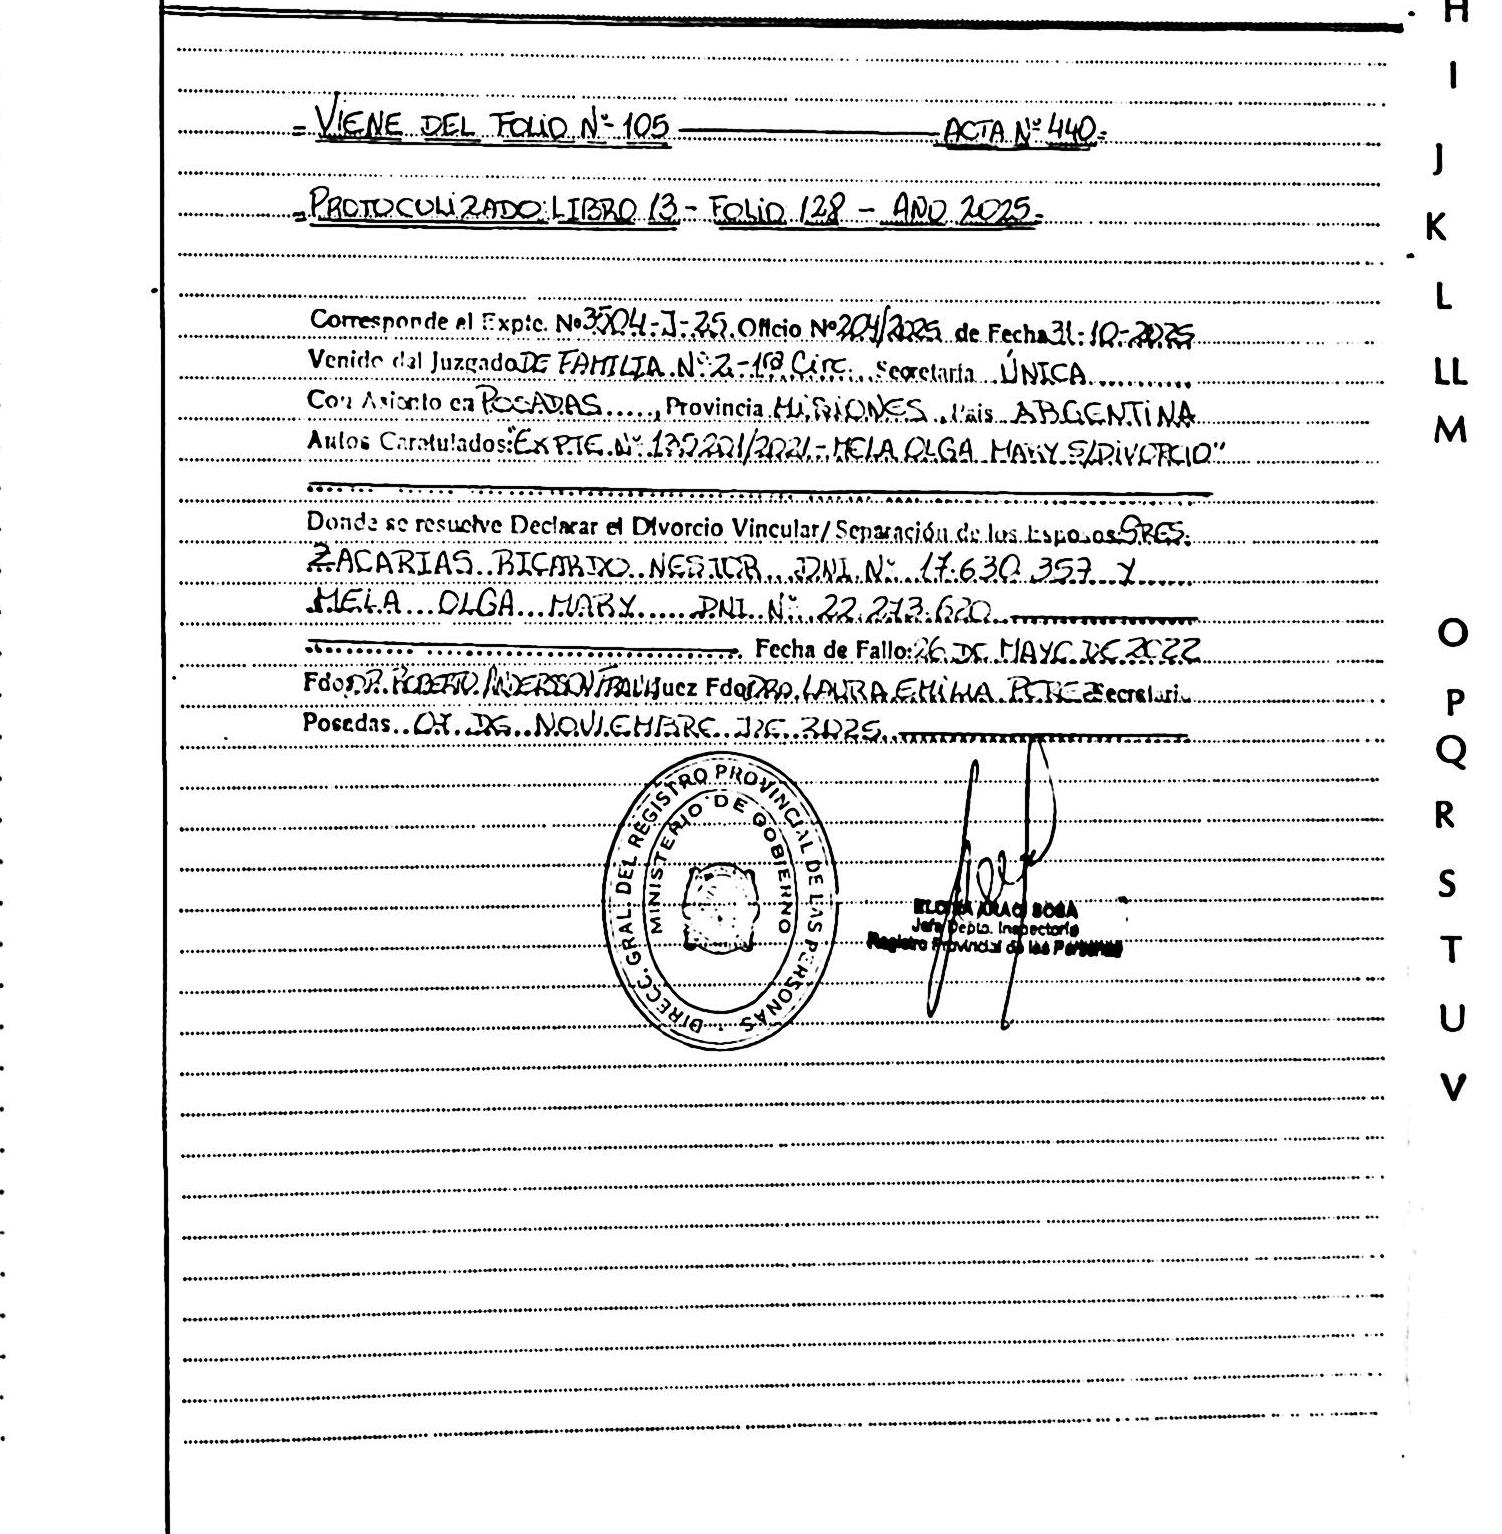 H
I
J
K
L
LL
M
O
P
Q
R
S
T
U
V
= VIENE DEL FOLIO Nº 105 ACTA Nº 440=
= PROTOCOLIZADO: LIBRO 13 - FOLIO 128 - AÑO 2025=
Corresponde el Expte. Nº 3504-J-25. Oficio Nº 204/2025 de Fecha 31-10-2025
Venido del Juzgado DE FAMILIA Nº 2 - 1ra Circ. Secretaría ÚNICA
Con Asiento en POSADAS, Provincia MISIONES País ARGENTINA
Autos Caratulados: "EXPTE. Nº 135201/2021 - MELA OLGA MARY S/DIVORCIO"
Donde se resuelve Declarar el Divorcio Vincular/ Separación de los Esposos SRES.
ZACARIAS RICARDO NESTOR DNI Nº 17.630.357 Y
MELA OLGA MARY DNI Nº 22.273.620
Fecha de Fallo: 26 DE MAYO DE 2022
Fdo: DR. ROBERTO ANDERSSON FRANK Juez Fdo: DRA. LAURA EMILIA PEREZ Secretari
Posadas 07 DE NOVIEMBRE DE 2025
DIRECC. GRAL. DEL REGISTRO PROVINCIAL DE LAS PERSONAS
MINISTERIO DE GOBIERNO
SOSA
Jefa Depto. Inspectoría
Registro Provincial de las Personas